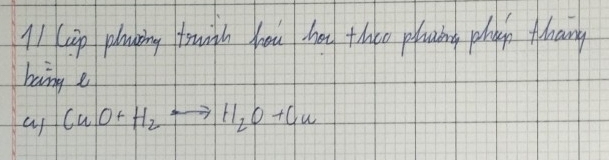 1/ Lập phương trình hoá học theo phương pháp thăng
bằng e
a, CuO + H₂ → H₂O + Cu